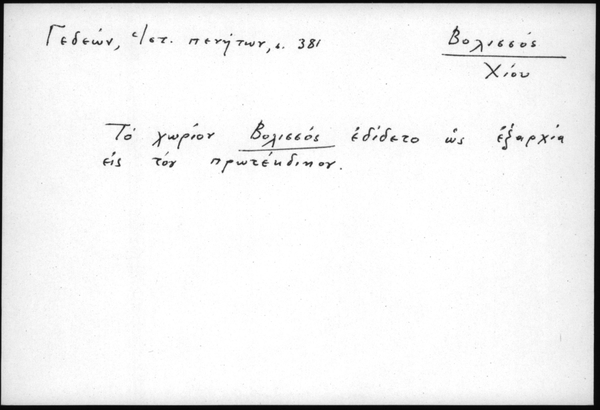 Γεδεών, Ἱστ. πενήτων, σ. 381
Βολισσός
Χίου
Τὸ χωρίον Βολισσὸς ἐδίδετο ὡς ἐξαρχία
εἰς τὸν πρωτέκδικον.